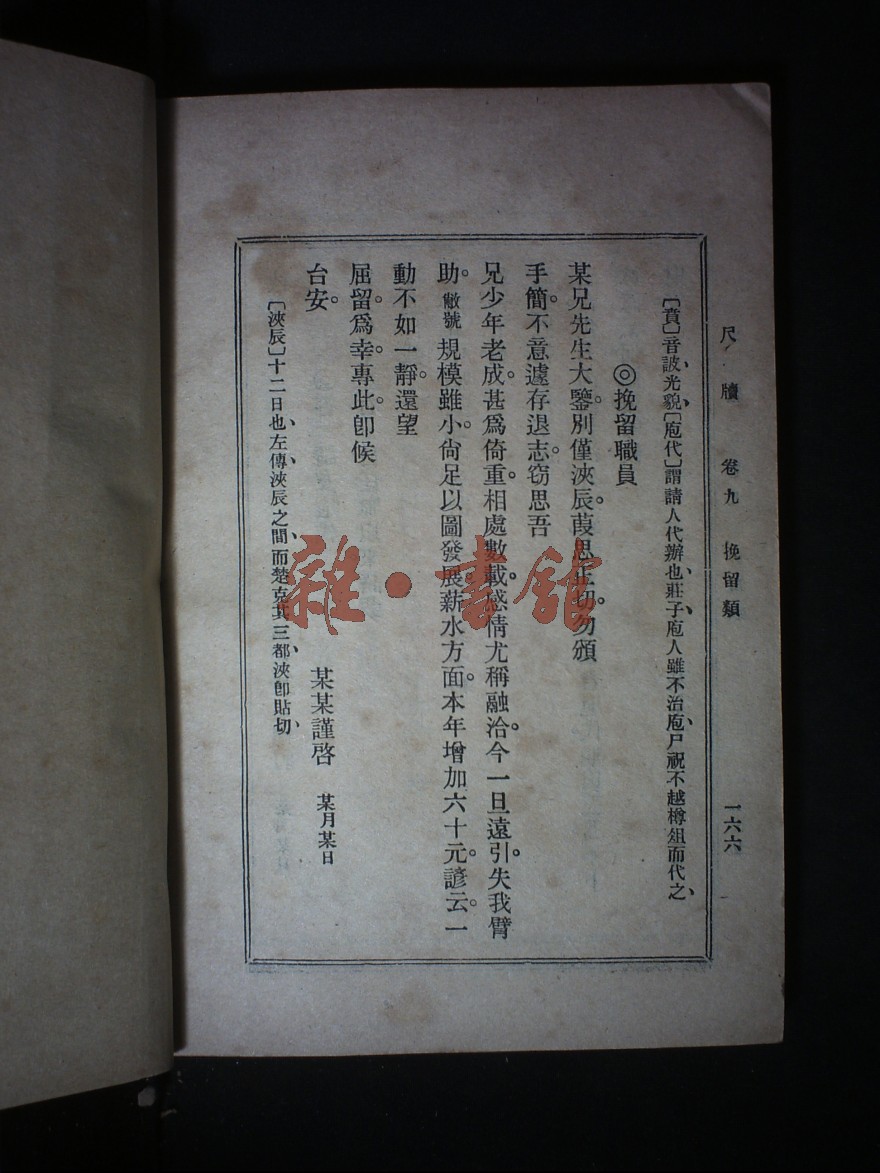 尺牘 卷九 挽留類 一六六
〔賁〕音詖、光貌、〔庖代〕謂請人代辦也、莊子庖人雖不治庖、尸祝不越樽俎而代之、
◎挽留職員
某兄先生大鑒。別僅浹辰。葭思正切。勿頒
手簡。不意遽存退志。窃思吾
兄少年老成。甚爲倚重。相處數載。感情尤稱融洽。今一旦遠引。失我臂
助。敝號規模雖小。尙足以圖發展。薪水方面。本年增加六十元。諺云。一
動不如一靜。還望
屈留。爲幸。專此。卽候
台安。 某某謹啓 某月某日
〔浹辰〕十二日也、左傳浹辰之間、而楚克其三都、浹卽貼切、
雜·書館